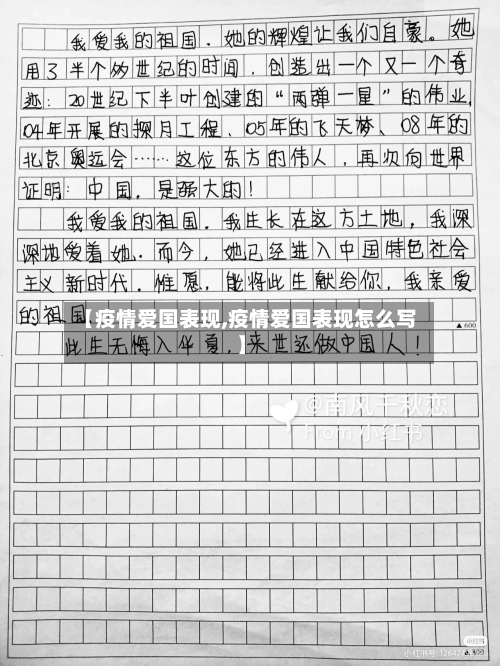 我爱我的祖国．她的辉煌让我们自豪。她
用了半个多世纪的时间，创造出一个又一个奇
迹：20世纪下半叶创建的“两弹一星”的伟业，
04年开展的探月工程、05年的飞天梦、08年的
北京奥运会……这位东方的伟人，再次向世界
证明：中国，是强大的！
我爱我的祖国．我生长在这方土地，我深
深地爱着她．而今，她已经进入中国特色社会
主义新时代．惟愿，能将此生献给你，我亲爱
的祖国
【疫情爱国表现,疫情爱国表现怎么写
】
▲600
此生无悔入华夏，来世还做中国人！
@南风千秋恋
From 小红书
小红书
小红书号:12647
▲800